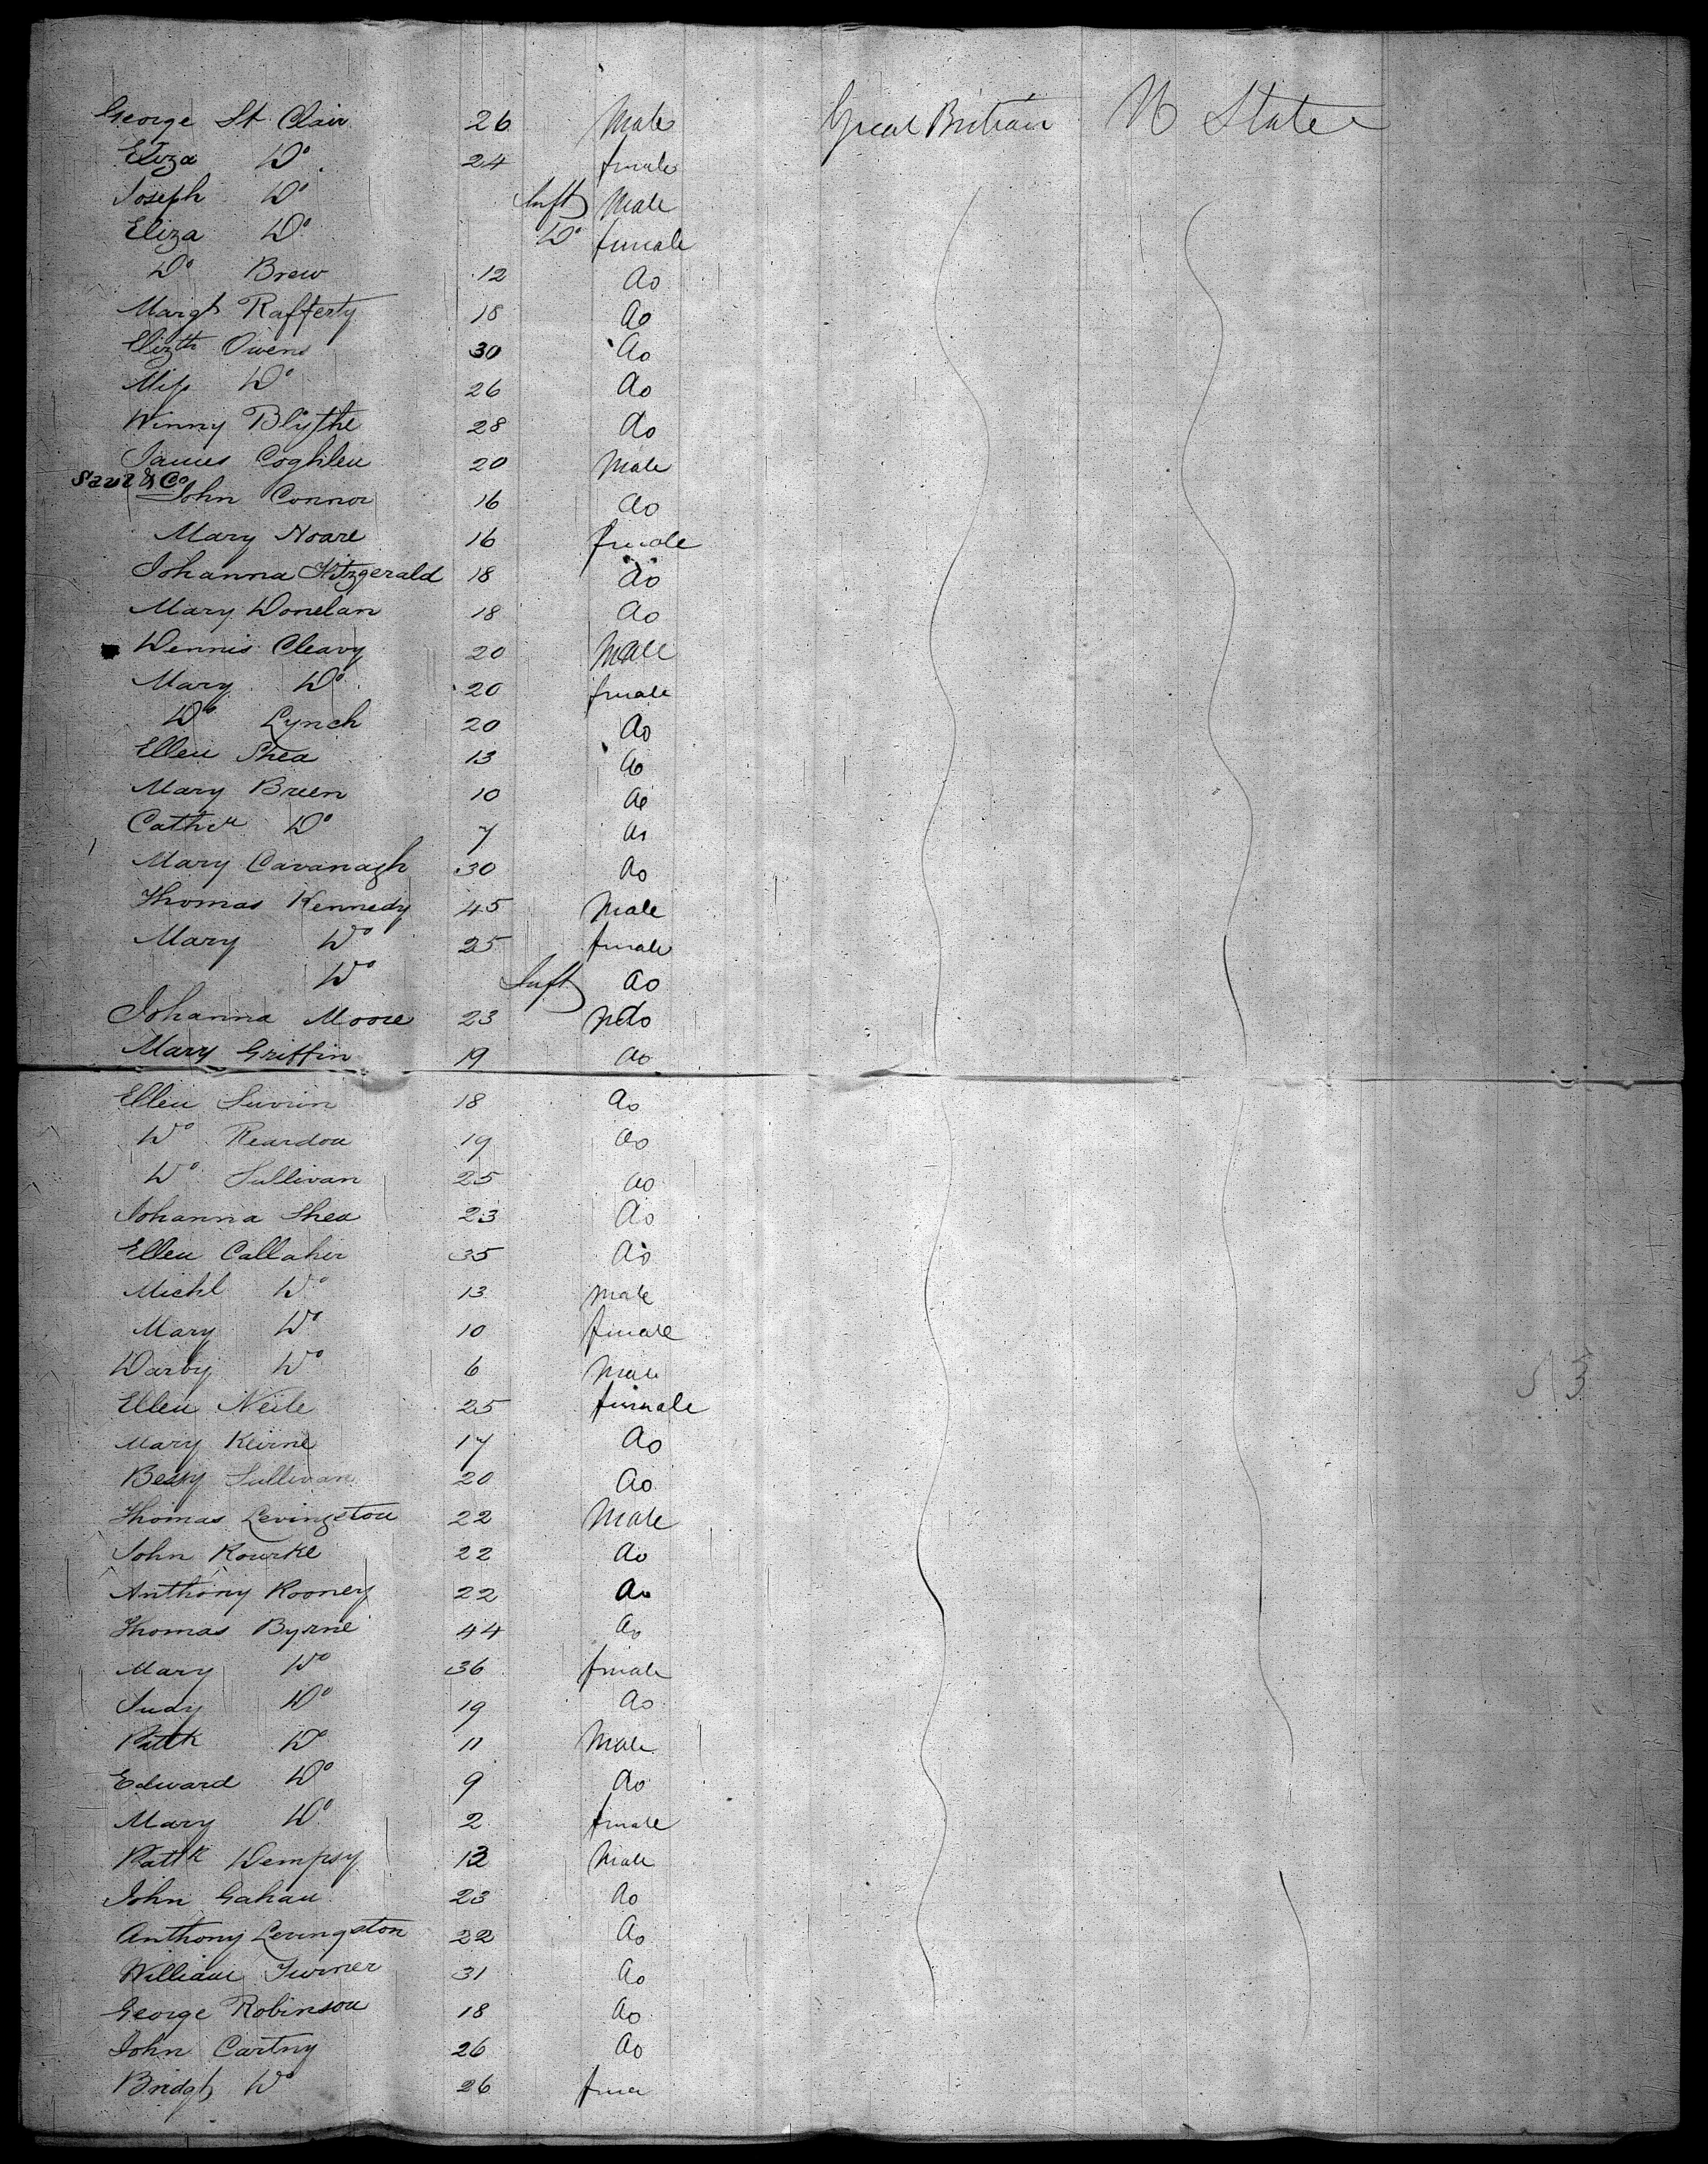 George St Clair 26 Male Great Britain U States
Eliza Do 24 female
Joseph Do Inft Male
Eliza Do Do female
Do Brew 12 do
Margt Rafferty 18 do
Elizth Owens 30 do
Miss Do 26 do
Winny Blythe 28 do
James Coghlen 20 Male
Saul & Co
John Connor 16 do
Mary Hoare 16 female
Johanna Fitzgerald 18 do
Mary Donelan 18 do
Dennis Cleavy 20 Male
Mary Do 20 female
Do Lynch 20 do
Ellen Shea 13 do
Mary Breen 10 do
Do 7 do
Mary Cavanagh 30 do
Thomas Kennedy 45 Male
Mary Do 25 female
Do Inft do
Johanna Moore 23 do
Mary Griffin 19 do
Ellen 18 do
Do Reardon 19 do
Do Sullivan 25 do
Johanna Shea 23 do
Ellen Callaher 35 do
Michl Do 13 male
Mary Do 10 female
Darby Do 6 Male
Ellen Neile 25 female
Mary Keirne 17 do
Bessy Sullivan 20 do
Thomas Levingston 22 Male
John Rourke 22 do
Anthony Rooney 22 do
Thomas Byrne 44 do
Mary Do 36 female
Judy Do 19 do
Pattk Do 11 Male
Edward Do 9 do
Mary Do 2 female
Pattk Dempsy 12 Male
John Gahan 23 do
Anthony Levingston 22 do
William Turner 31 do
George Robinson 18 do
John Cartny 26 do
Bridgt Do 26 fema